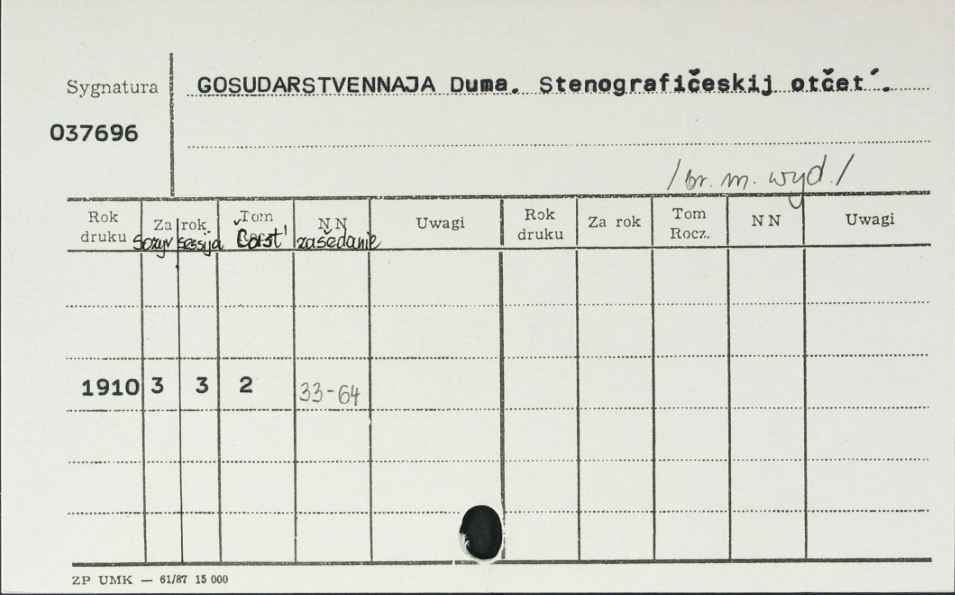 Sygnatura GOSUDARSTVENNAJA Duma. Stenografičeskij otčet´.
037696
/br. m. wyd./
Rok druku Za rok Tom NN Uwagi Rok druku Za rok Tom Rocz. NN Uwagi
sozyv sessija Čast' zasedanie
1910 3 3 2 33-64
ZP UMK — 61/87 15 000